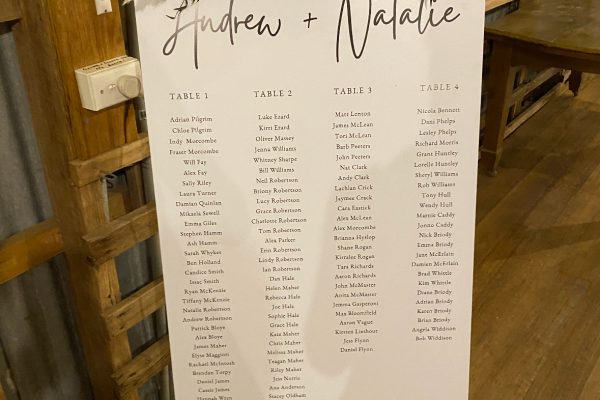 Andrew + Natalie
TABLE 1
Adrian Pilgrim
Chloe Pilgrim
Indy Morcombe
Fraser Morcombe
Will Fay
Alex Fay
Sally Riley
Laura Turner
Damian Quinlan
Mikaela Sewell
Emma Giles
Stephen Hamm
Ash Hamm
Sarah Whykes
Ben Holland
Candice Smith
Isaac Smith
Ryan McKenzie
Tiffany McKenzie
Natalie Robertson
Andrew Robertson
Patrick Bloye
Alex Bloye
James Maher
Elyse Maggioni
Rachael McIntosh
Brendan Torpy
Daniel James
Cassie James
Hannah
TABLE 2
Luke Ezard
Kirri Ezard
Oliver Massey
Jenna Williams
Whitney Sharpe
Bill Williams
Neil Robertson
Briony Robertson
Lucy Robertson
Grace Robertson
Charlotte Robertson
Tom Robertson
Alex Parker
Erin Robertson
Lindy Robertson
Ian Robertson
Dan Hale
Helen Maher
Rebecca Hale
Joe Hale
Sophie Hale
Grace Hale
Kate Maher
Chris Maher
Melissa Maher
Teagan Maher
Riley Maher
Jess Norris
Ane Anderson
Stacey Oldham
TABLE 3
Matt Lenton
James McLean
Tori McLean
Barb Peeters
John Peeters
Nat Clark
Andy Clark
Lachlan Crick
Jaymee Crack
Cara Eastick
Alex McLean
Alex Morcombe
Brianna Hyslop
Shane Rogan
Kirralee Rogan
Tara Richards
Aaron Richards
John McMaster
Anita McMaster
Jemma Gasperoni
Max Bloomfield
Aaron Vague
Kirsten Lieshout
Jess Flynn
Daniel Flynn
TABLE 4
Nicola Bennett
Dani Phelps
Lesley Phelps
Richard Morris
Grant Huntley
Lorelle Huntley
Sheryl Williams
Rob Williams
Tony Hull
Wendy Hull
Marnie Caddy
Jonno Caddy
Nick Briody
Emma Briody
Jane McErlain
Damian McErlain
Brad Whittle
Kim Whittle
Diane Briody
Adrian Briody
Karen Briody
Brian Briody
Angela Widdison
Bob Widdison